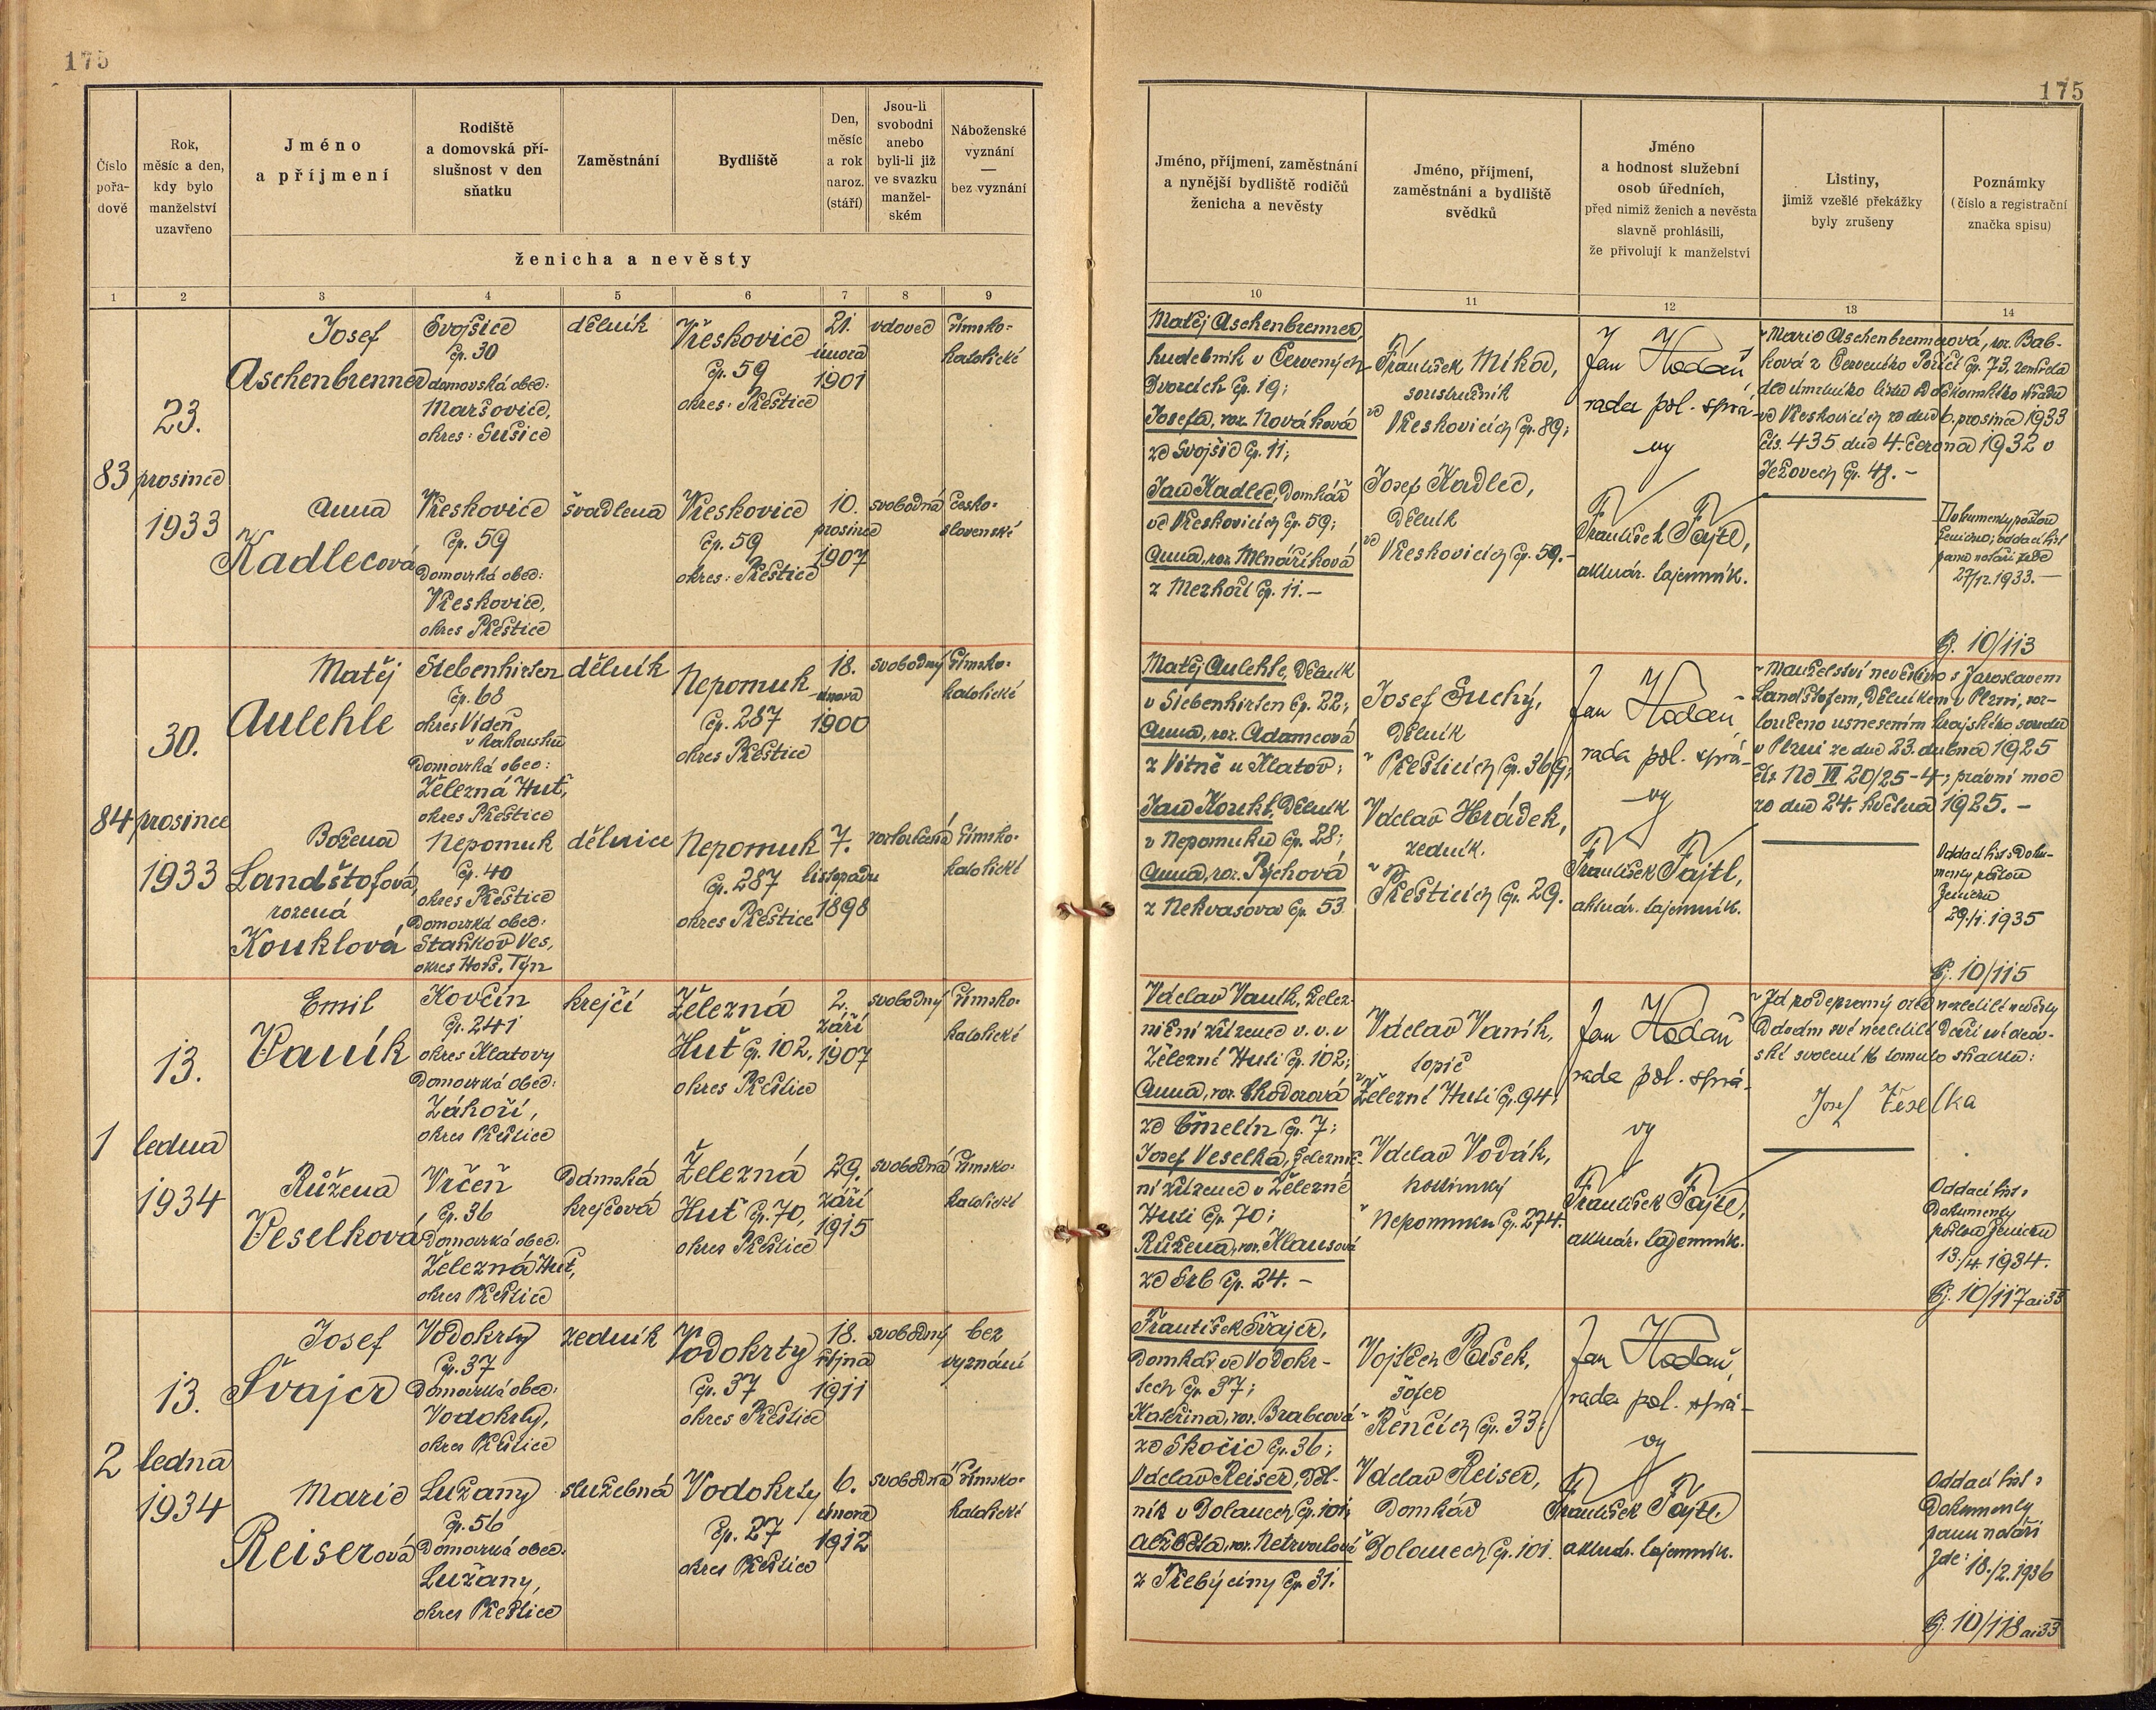 175
Číslo pořa-dové
Rok, měsíc a den, kdy bylo manželství uzavřeno
Jméno a příjmení
Rodiště a domovská pří-slušnost v den sňatku
Zaměstnání
Bydliště
Den, měsíc a rok naroz. (stáří)
Jsou-li svobodni anebo byli-li již ve svazku manžel-ském
Náboženské vyznání — bez vyznání
ženicha a nevěsty
1 2 3 4 5 6 7 8 9
83
23.
prosince
1933
Josef
Aschenbrenner
Svojšice
čp. 30
domovská obec:
Maršovice,
okres: Sušice
dělník
Vřeskovice
čp. 59
okres: Přeštice
21.
února
1901
vdovec
římsko-
katolické
Anna
Kadlecová
Vřeskovice
čp. 59
Domovská obec:
Vřeskovice,
okres Přeštice
švadlena
Vřeskovice
čp. 59
okres: Přeštice
10.
prosince
1907
svobodná
česko-
slovenské
84
30.
prosince
1933
Matěj
Aulehle
Siebenhirten
čp. 68
okres Vídeň
v Rakousku
Domovská obec:
Železná Huť,
okres Přeštice
dělník
Nepomuk
čp. 287
okres Přeštice
18.
února
1900
svobodný
římsko-
katolické
Božena
Landštofová
rozená
Kouklová
Nepomuk
čp. 40
okres Přeštice
Domovská obec:
Staňkov Ves,
okres Horš. Týn
dělnice
Nepomuk
čp. 287
okres Přeštice
7.
listopadu
1898
rozloučená
římsko-
katolické
1
13.
ledna
1934
Emil
Vaník
Kovčín
čp. 241
okres Klatovy
Domovská obec:
Záhoří,
okres Přeštice
krejčí
Železná
Huť čp. 102,
okres Přeštice
2.
září
1907
svobodný
římsko-
katolické
Růžena
Veselková
Vrčeň
čp. 36
Domovská obec:
Železná Huť,
okres Přeštice
Dámská
krejčová
Železná
Huť čp. 70,
okres Přeštice
29.
září
1915
svobodná
římsko-
katolické
2
13.
ledna
1934
Josef
Švajcr
Vodokrty
čp. 37
Domovská obec:
Vodokrty,
okres Přeštice
zedník
Vodokrty
čp. 37
okres Přeštice
18.
října
1911
svobodný
bez
vyznání
Marie
Reiserová
Lužany
čp. 56
Domovská obec:
Lužany,
okres Přeštice
služebná
Vodokrty
čp. 27
okres Přeštice
6.
února
1912
svobodná
římsko-
katolické
175
Jméno, příjmení, zaměstnání a nynější bydliště rodičů ženicha a nevěsty
Jméno, příjmení, zaměstnání a bydliště svědků
Jméno a hodnost služební osob úředních, před nimiž ženich a nevěsta slavně prohlásili, že přivolují k manželství
Listiny, jimiž vzešlé překážky byly zrušeny
Poznámky (číslo a registrační značka spisu)
10 11 12 13 14
Matěj Aschenbrenner,
hudebník v Červených
Dvorcích čp. 19;
Josefa, roz. Nováková
ze Svojšic čp. 11;
Jan Kadlec, Domkář
ve Vřeskovicích čp. 59;
Anna, roz. Mlnáříková
z Mezhoří čp. 11. -
František Mika,
soustružník
ve Vřeskovicích čp. 89;
Josef Kadlec,
Dělník
ve Vřeskovicích čp. 59. -
Jan Hodaň
rada pol. sprá-
vy
František Fajtl,
aktuár. tajemník.
Marie Aschenbrennerová, roz. Bab-
ková z Červeného Poříčí čp. 73, zemřela
dle úmrtního listu
ve Vřeskovicích ze dne 6. prosince 1933
čís. 435 dne 4. června 1932 v
Ježovech čp. 48. -
Dokumenty poštou
ženichu; oddací list
panu notáři zde
27/12. 1933. -
čj. 10/113
Matěj Aulehle, Dělník
v Siebenhirten čp. 22;
Anna, roz. Adamcová
z Vítně u Klatov;
Jan Koukl, Dělník
v Nepomuku čp. 28;
Anna, roz. Pýchová
z Nekvasova čp. 53
Josef Suchý,
Dělník
v Přešticích čp. 369;
Václav Hrádek,
zedník.
v Přešticích čp. 29.
Jan Hodaň
rada pol. sprá-
vy
František Fajtl,
aktuár. tajemník.
Manželství nevěstino s Jaroslavem
Landštofem, Dělníkem v Plzni, roz-
loučeno usnesením krajského soudu
v Plzni ze dne 23. dubna 1925
čís. Nc VI 20/25-4; právní moc
ze dne 24. května 1925. -
Oddací list s Doku-
menty poštou
ženichu
29./1. 1935
čj. 10/115
Václav Vaník, želez-
niční zřízenec v. v. v
Železné Huti čp. 102;
Anna, roz. Chodorová
ze Čmelín čp. 7;
Josef Veselka, železnič-
ní zřízenec v Železné
Huti čp. 70;
Růžena, roz. Klausová
ze Srb čp. 24. -
Václav Vaník,
topič
v Železné Huti čp. 94;
Václav Vodák,
hostinský
v Nepomuku čp. 274.
Jan Hodaň
rada pol. sprá-
vy
František Fajtl,
aktuár. tajemník.
Já podepsaný otec nezletilé nevěsty
dávám své nezletilé Dceři otcov-
ské svolení k tomuto sňatku:
Josef Veselka
Oddací list s
Dokumenty
poštou ženichu
13./4. 1934.
čj. 10/117 ai 33
František Švajcr,
Domkář ve Vodokr-
tech čp. 37;
Kateřina, roz. Brabcová
ze Skočic čp. 36;
Václav Reiser, Děl-
ník v Dolanech čp. 101;
Alžběta, roz. Netrvalová
z Přebýciny čp. 31.
Vojtěch Pašek,
šofer
v Řenčích čp. 33;
Václav Reiser,
Domkář
v Dolanech čp. 101.
Jan Hodaň,
rada pol. sprá-
vy
František Fajtl.
aktuár. tajemník.
Oddací list s
Dokumenty
panu notáři
zde: 18./2. 1936
čj. 10/118 ai 33